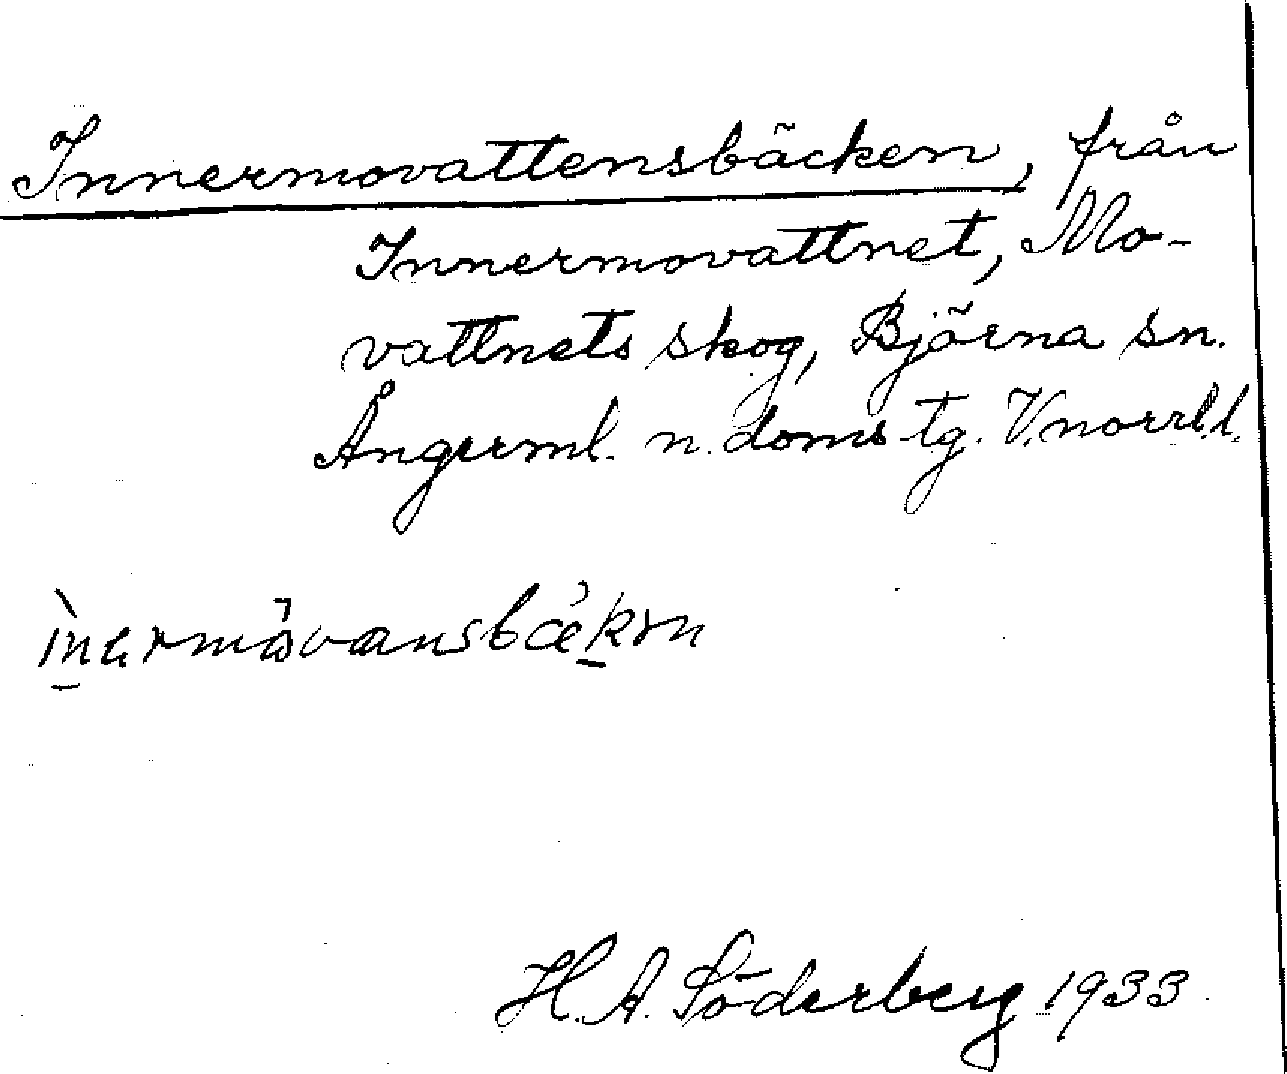 Innermovattensbäcken, från
Innermovattnet, Mo-
vattnets skog, Björna sn.
Ångerml. n. doms tg. V.norrl.l.
H. A. Söderberg 1933